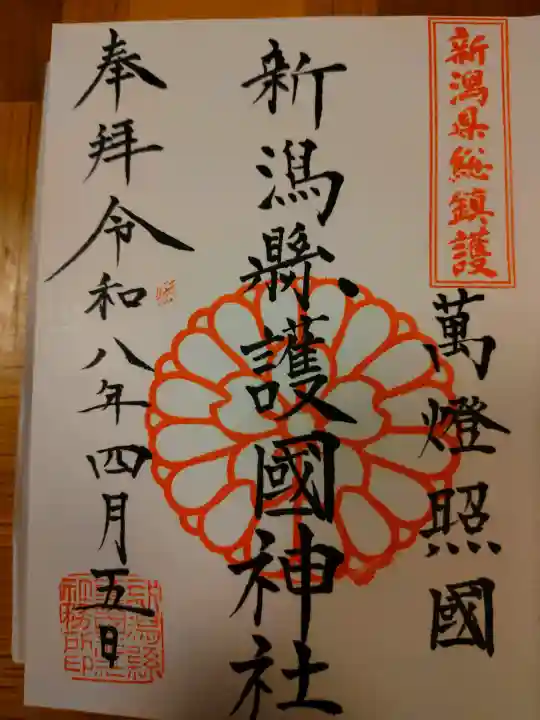 新潟県総鎮護
萬燈照國
新潟縣護國神社
奉拝令和八年四月五日